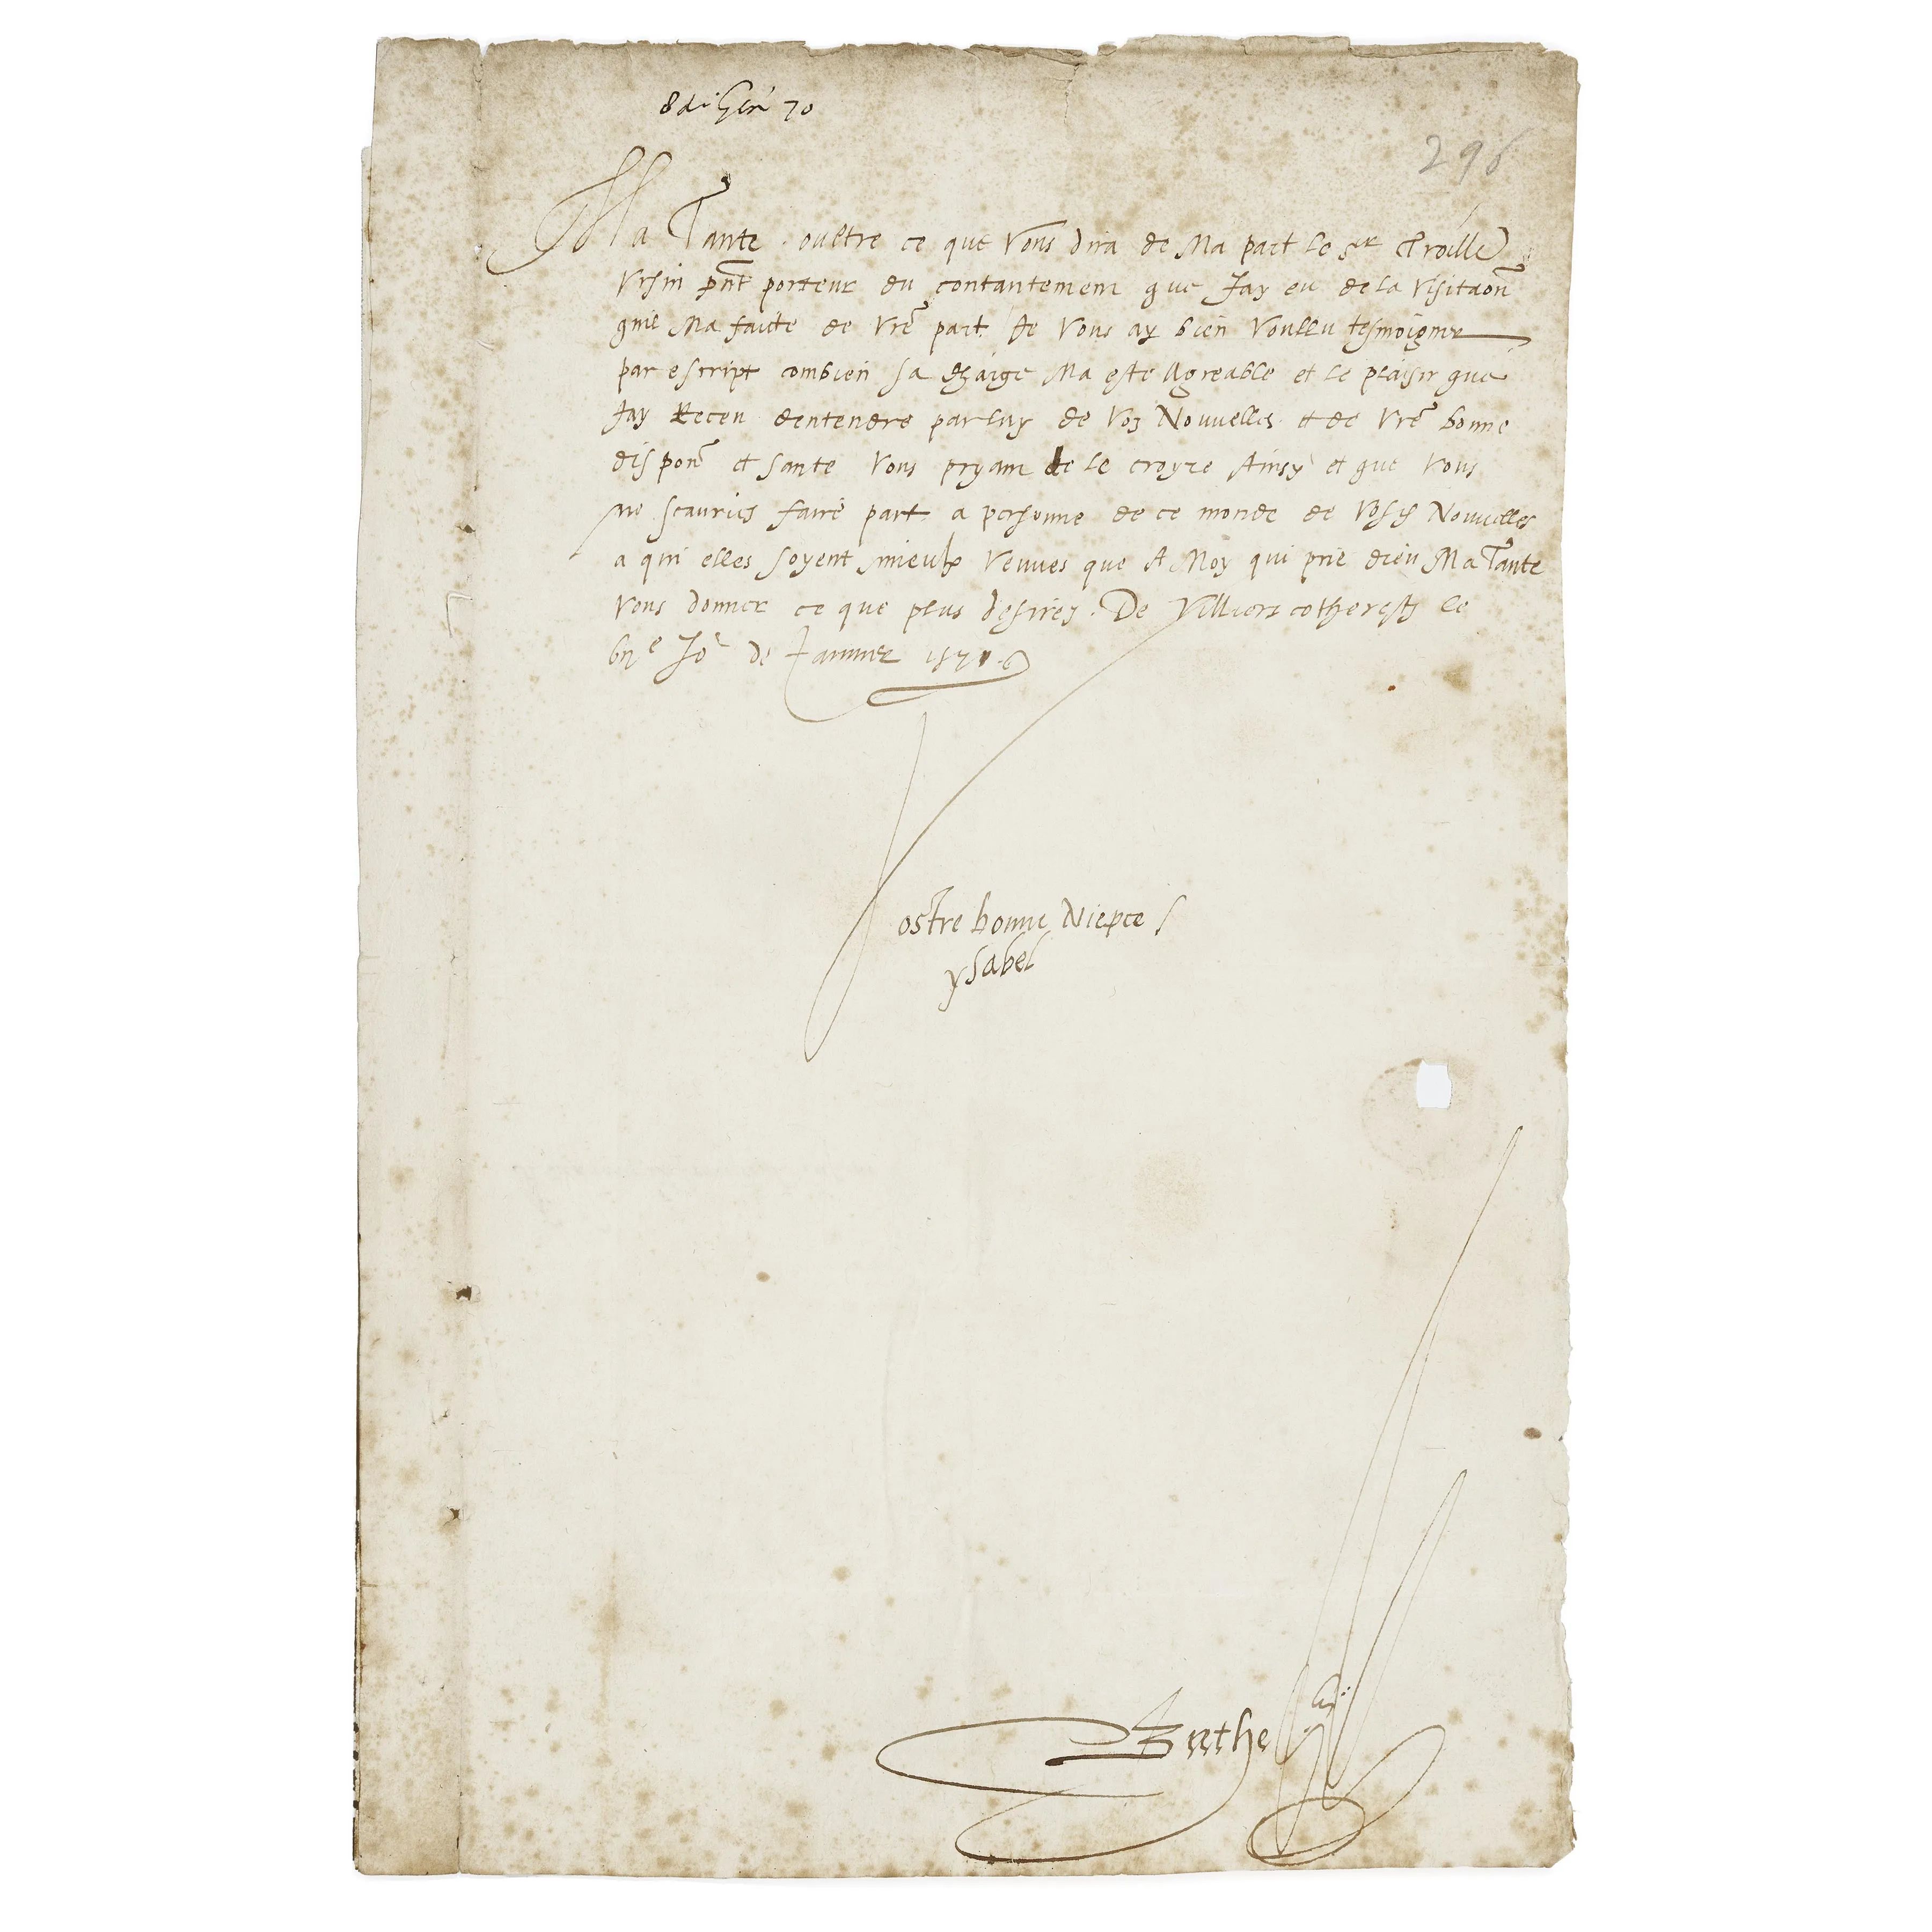 8 di Gen 70
296
Ma Tante. oultre ce que Vous dira de Ma part le Sr Troille
Vrsin pñt porteur du contantement que Jay eu de la Visitaõn
quil Ma faicte de Vrē part Je Vous ay bien Voullu tesmoigner
par escript combien sa charge Ma este Agreable et le plaisir que
Jay Receu dentendre par luy de Voz Nouuelles et de Vrē bonne
disponē et sante Vous pryant de le croyre Ainsy et que Vous
ne scauries faire part a personne de ce monde de Vosd Nouuelles
a qui elles soyent mieulx Venues que A Moy qui prie dieu Ma Tante
Vous donner ce que plus desirez. De Villiers cotherestz le
Jor de Januier 1571
Vostre bonne Niepce
ysabel